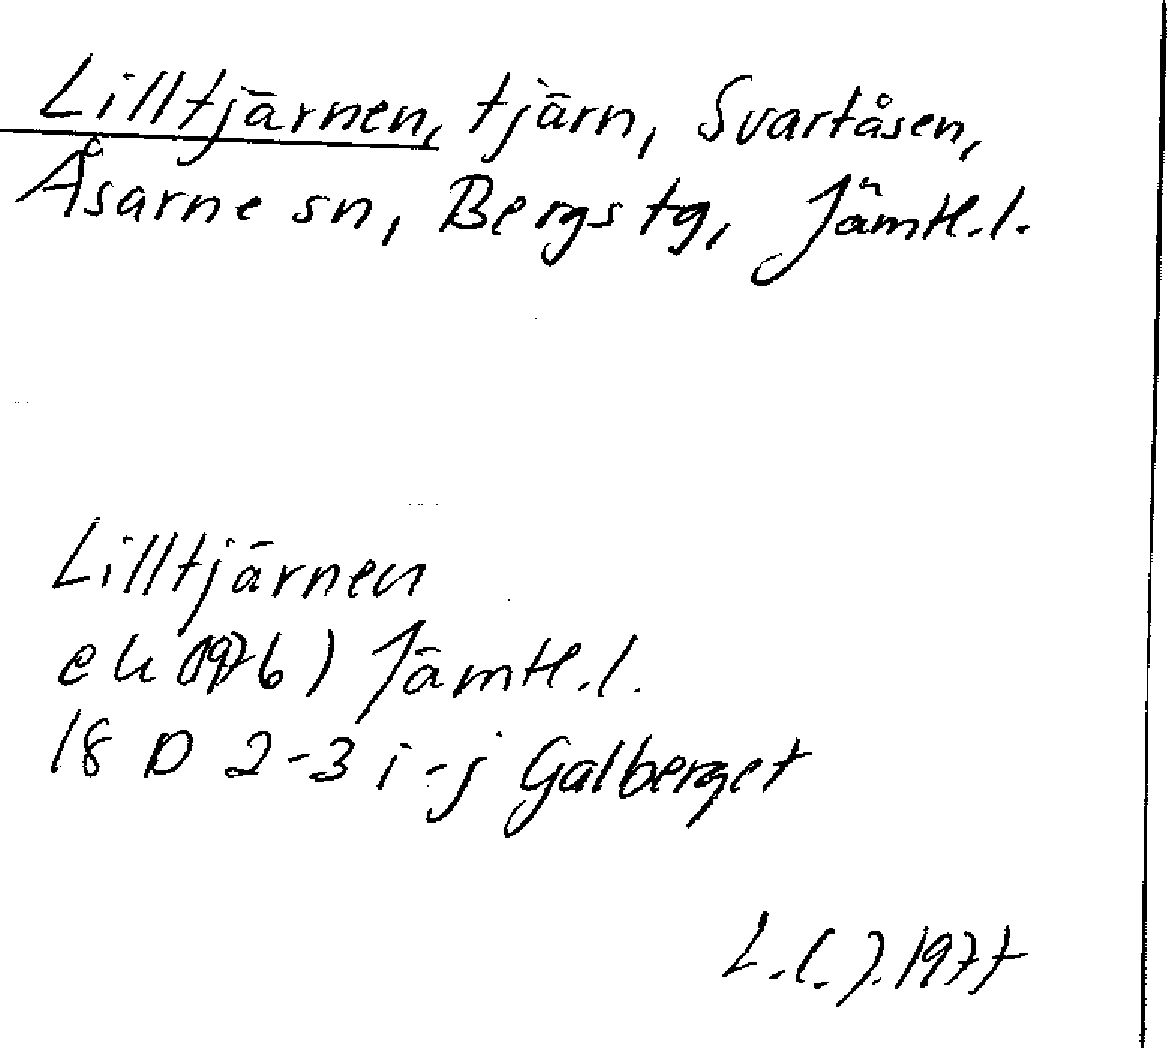 Lilltjärnen, tjärn, Svartåsen,
Åsarne sn, Bergs tg, Jämtl.l.
Lilltjärnen
ek (1976) Jämtl.l.
18 D 2-3 i-j Galberget
L.C.J. 1977